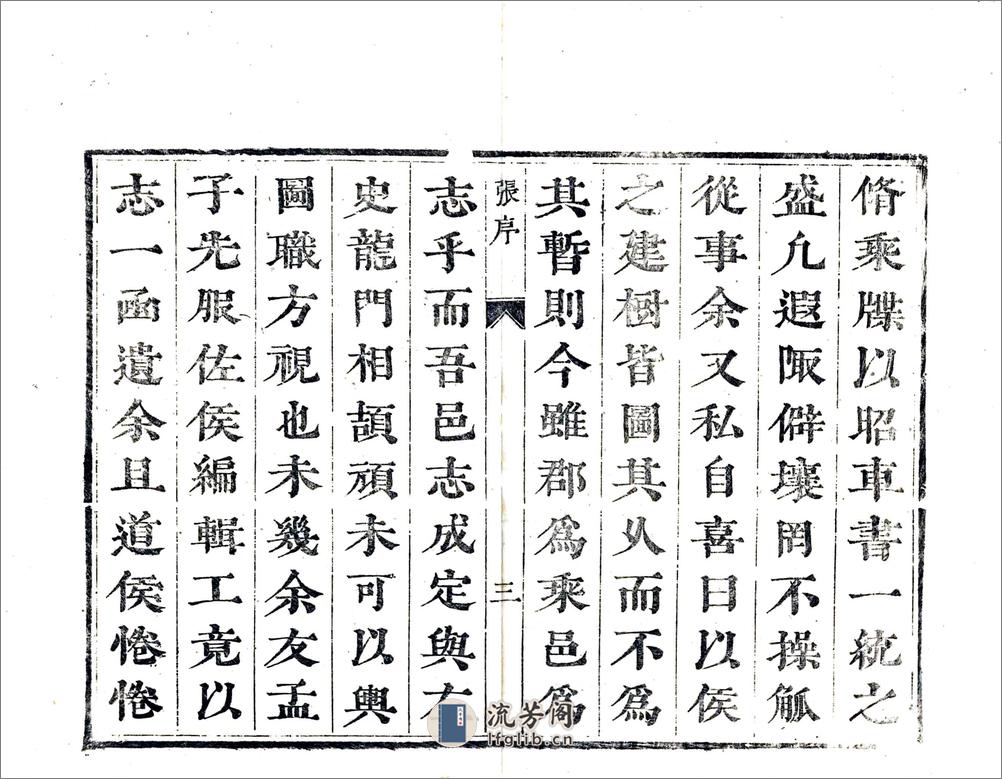 脩乘牒以昭車書一統之
盛凢遐陬僻壤罔不操觚
從事余又私自喜曰以侯
之建樹皆圖其乆而不爲
其暫則今雖郡爲乘邑爲
張序
三
志乎而吾邑志成定與左
史龍門相頡頏未可以輿
圖職方視也未幾余友孟
子先服佐侯編輯工竟以
志一函遺余且道侯惓惓
流芳阁
lfglib.cn